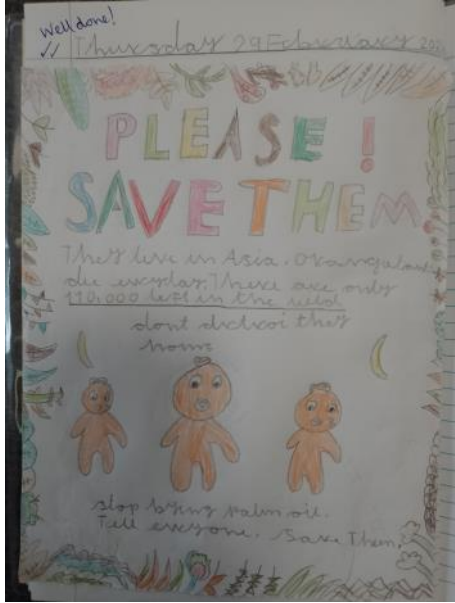 Well done!
Thursday 29 February
PLEASE!
SAVE THEM
They live in Asia. Orangutans
die everyday. There are only
110,000 left in the wild
dont distroi they
home
stop bying palm oil.
Tell everyone. Save Them.